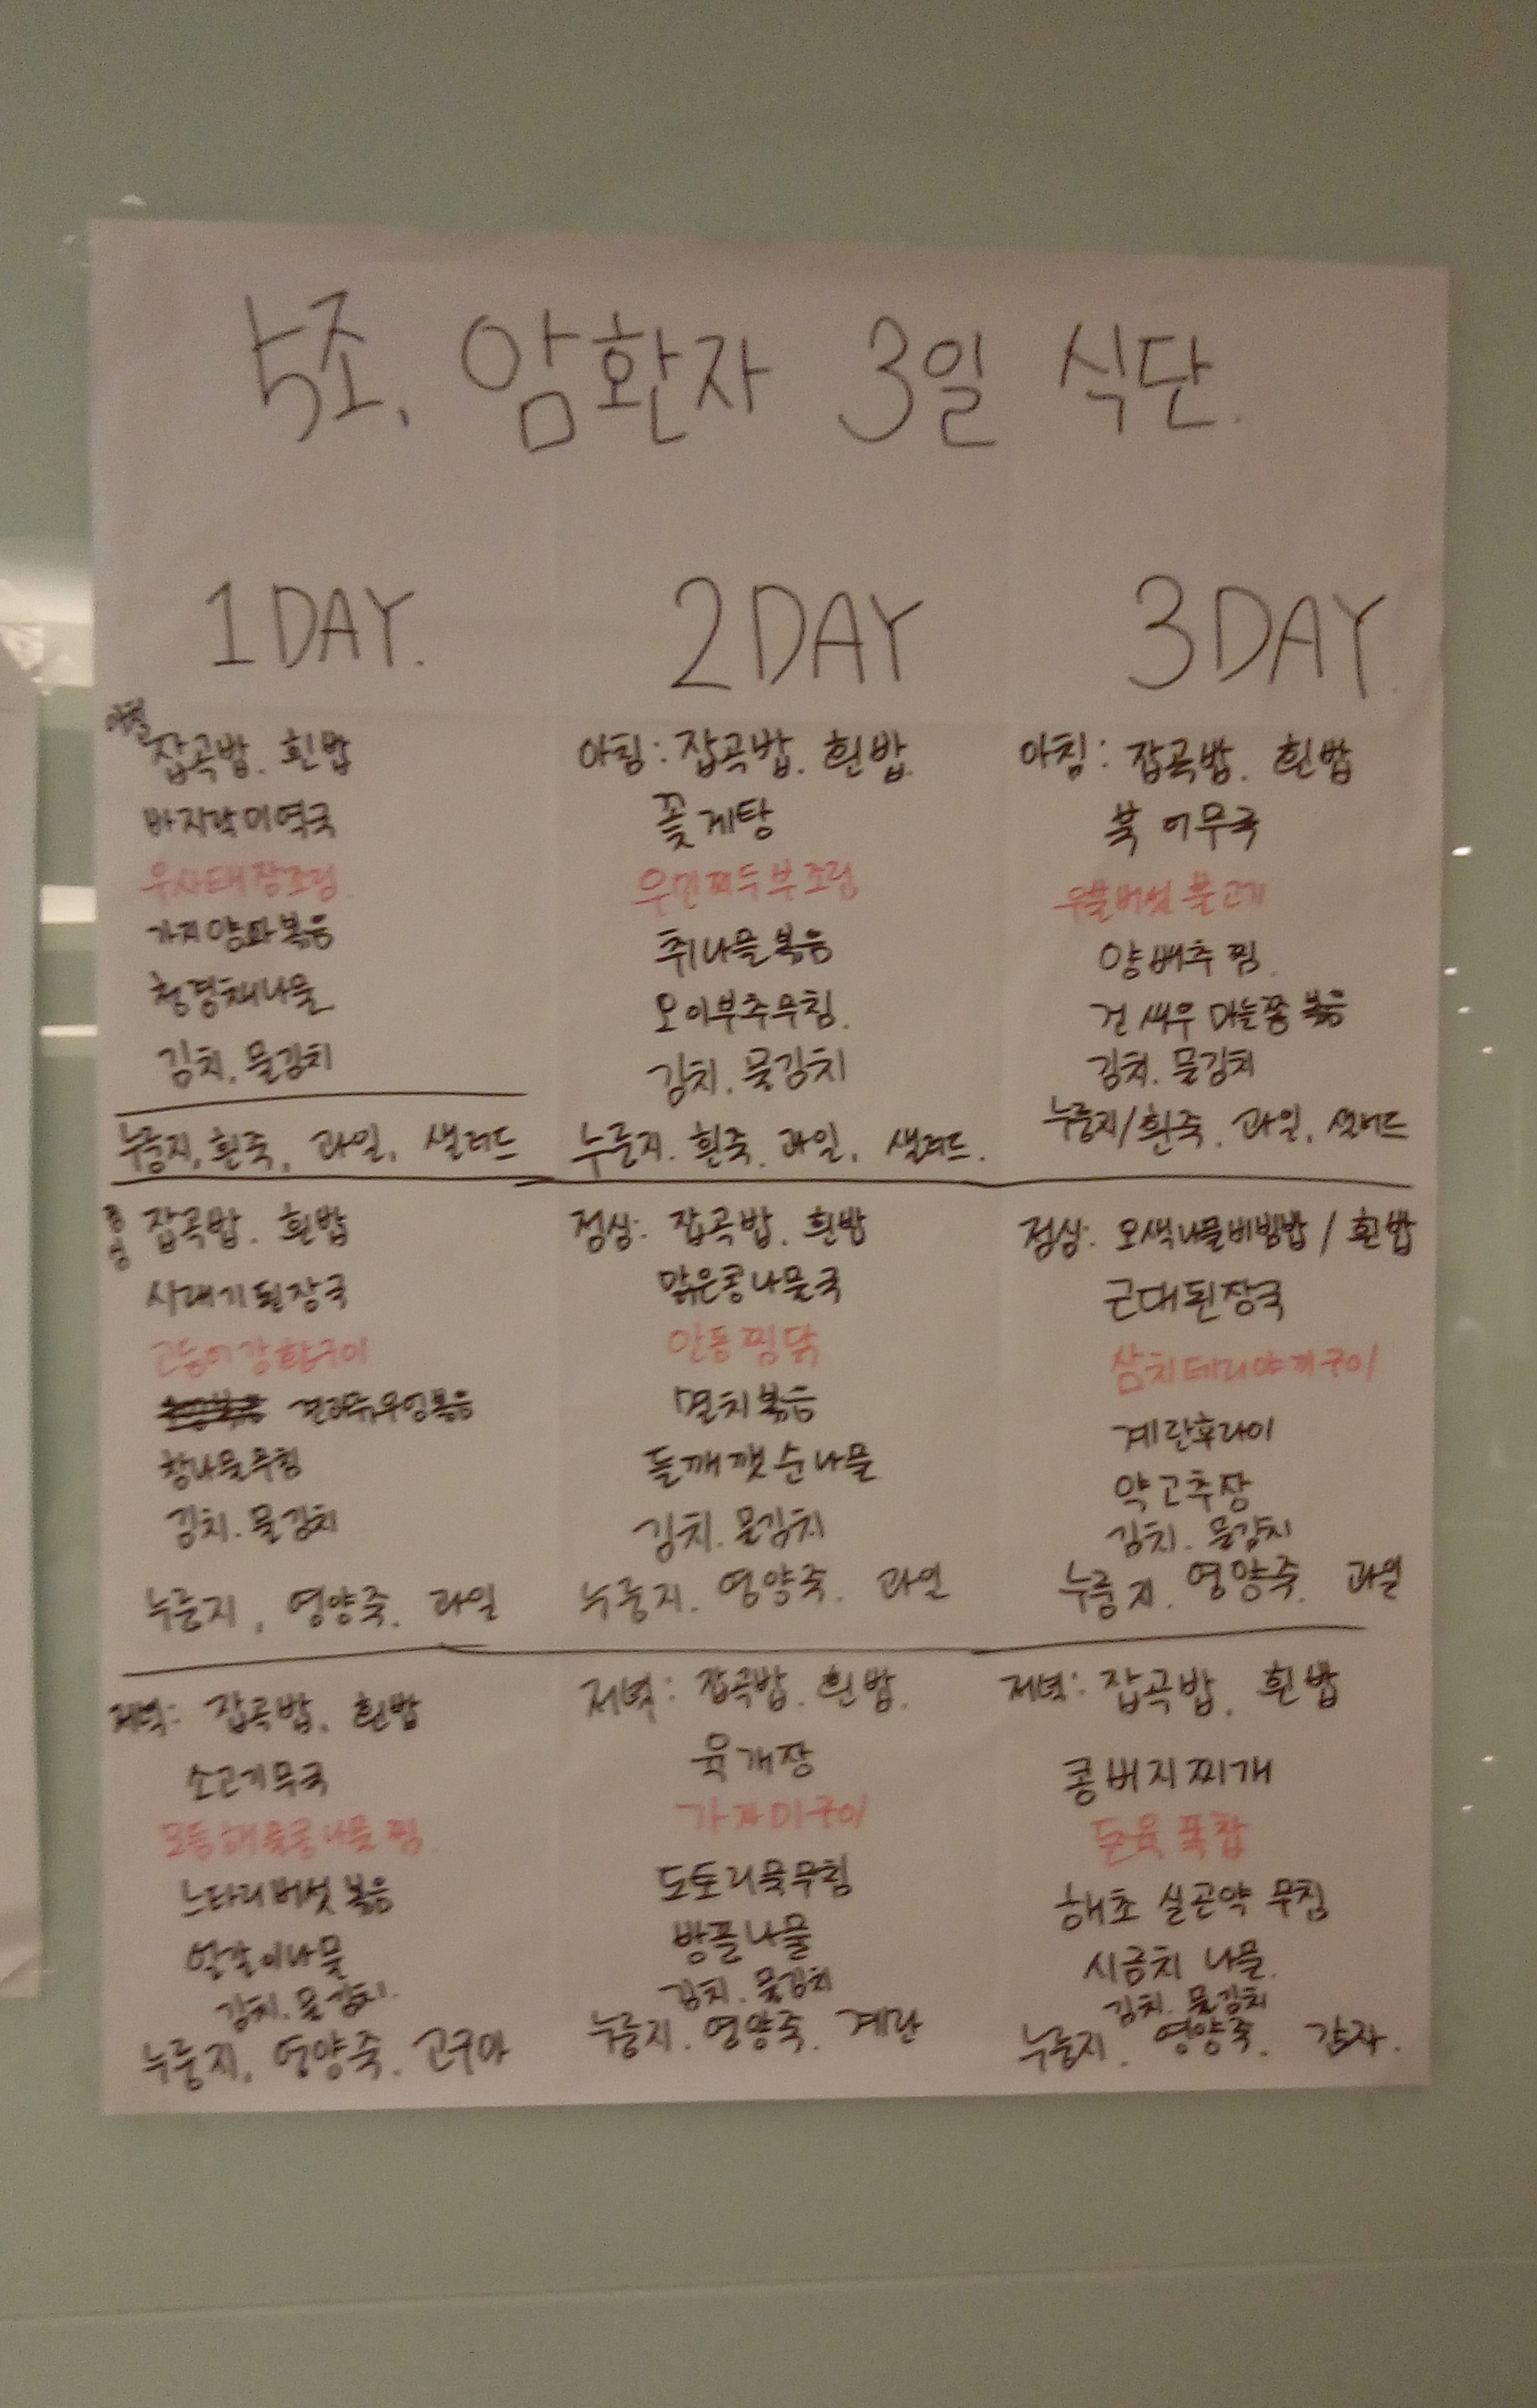 5조. 암환자 3일 식단.
1DAY.
아침
잡곡밥. 흰밥
바지락미역국
우사태장조림.
가지양파볶음
청경채나물
김치. 물김치
누룽지, 흰죽, 과일, 샐러드
점심
잡곡밥. 흰밥
시래기된장국
고등어강황구이
우엉볶음
참나물무침
김치. 물김치
누룽지, 영양죽. 과일
저녁: 잡곡밥. 흰밥
소고기무국
모듬해물콩나물찜.
느타리버섯볶음
얼갈이나물
김치. 물김치.
누룽지. 영양죽. 고구마
2DAY
아침: 잡곡밥. 흰밥.
꽃게탕
우민찌두부조림
취나물볶음
오이부추무침.
김치. 물김치
누룽지. 흰죽. 과일, 샐러드.
점심: 잡곡밥. 흰밥
맑은콩나물국
안동찜닭
멸치볶음
들깨깻순나물
김치. 물김치
누룽지. 영양죽. 과일
저녁: 잡곡밥. 흰밥.
육개장
가자미구이
도토리묵무침
방풀나물
김치. 물김치
누룽지. 영양죽. 계란
3DAY.
아침: 잡곡밥. 흰밥
북어무국
우불버섯불고기
양배추찜.
건새우 마늘쫑볶음
김치. 물김치
누룽지/흰죽. 과일, 샐러드
점심: 오색나물비빔밥 / 흰밥
근대된장국
삼치테리야끼구이
계란후라이
약고추장
김치. 물김치
누룽지. 영양죽. 과일
저녁: 잡곡밥. 흰밥
콩비지찌개
돈육폭찹
해초 실곤약 무침
시금치 나물.
김치. 물김치
누룽지. 영양죽. 감자.